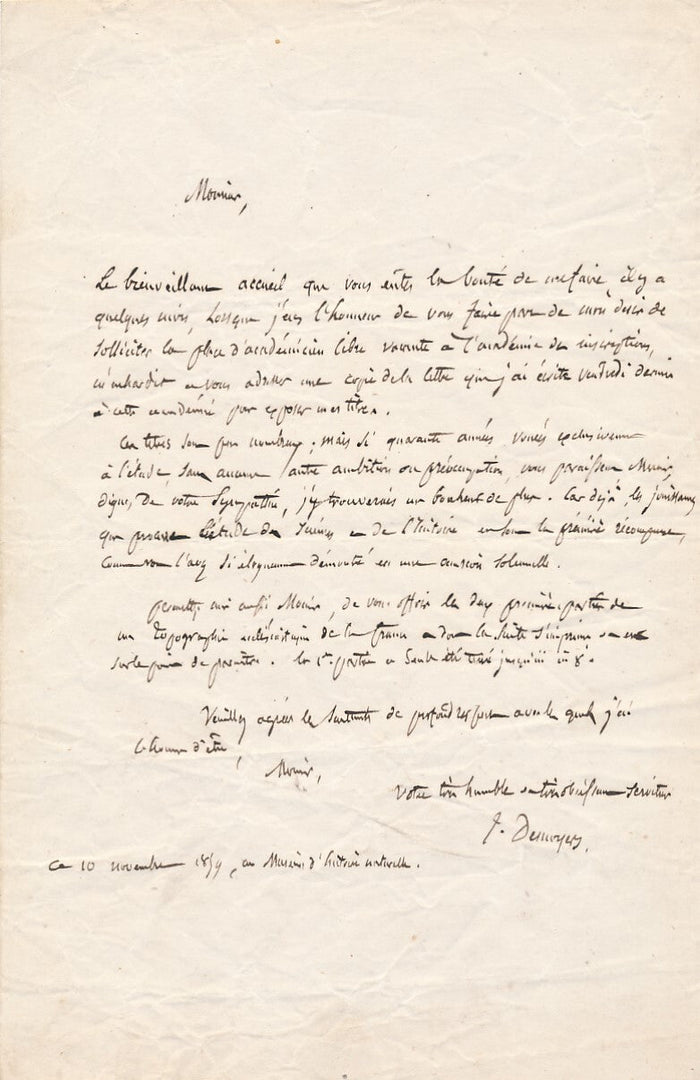 Monsieur,
Le bienveillant accueil que vous eûtes la bonté de me faire, il y a
quelques mois, lorsque j'eus l'honneur de vous faire part de mon désir de
solliciter la place d'académicien libre vacante à l'académie des inscriptions,
m'enhardit à vous adresser une copie de la lettre que j'ai écrite vendredi dernier
à cette académie pour exposer mes titres.
Ces titres sont peu nombreux ; mais si quarante années vouées exclusivement
à l'étude, sans aucune autre ambition ou préoccupation, vous paraissent Monsieur,
dignes de votre sympathie, j'y trouverais un bonheur de plus. Car déjà, les jouissances
que procure l'étude des sciences et de l'histoire en sont la première récompense,
comme vous l'avez si éloquemment démontré en une occasion solennelle.
permettez moi aussi Monsieur, de vous offrir les deux premières parties de
ma Topographie ecclésiastique de la france et dont la suite s'imprime et est
sur le point de paraître. la 1re partie a seule été tirée jusqu'ici in 8°.
Veuillez agréer les sentiments de profond respect avec lesquels j'ai
l'honneur d'être,
Monsieur,
Votre très humble et très obéissant serviteur
J. Desnoyers.
Ce 10 novembre 1859, au Muséum d'histoire naturelle.